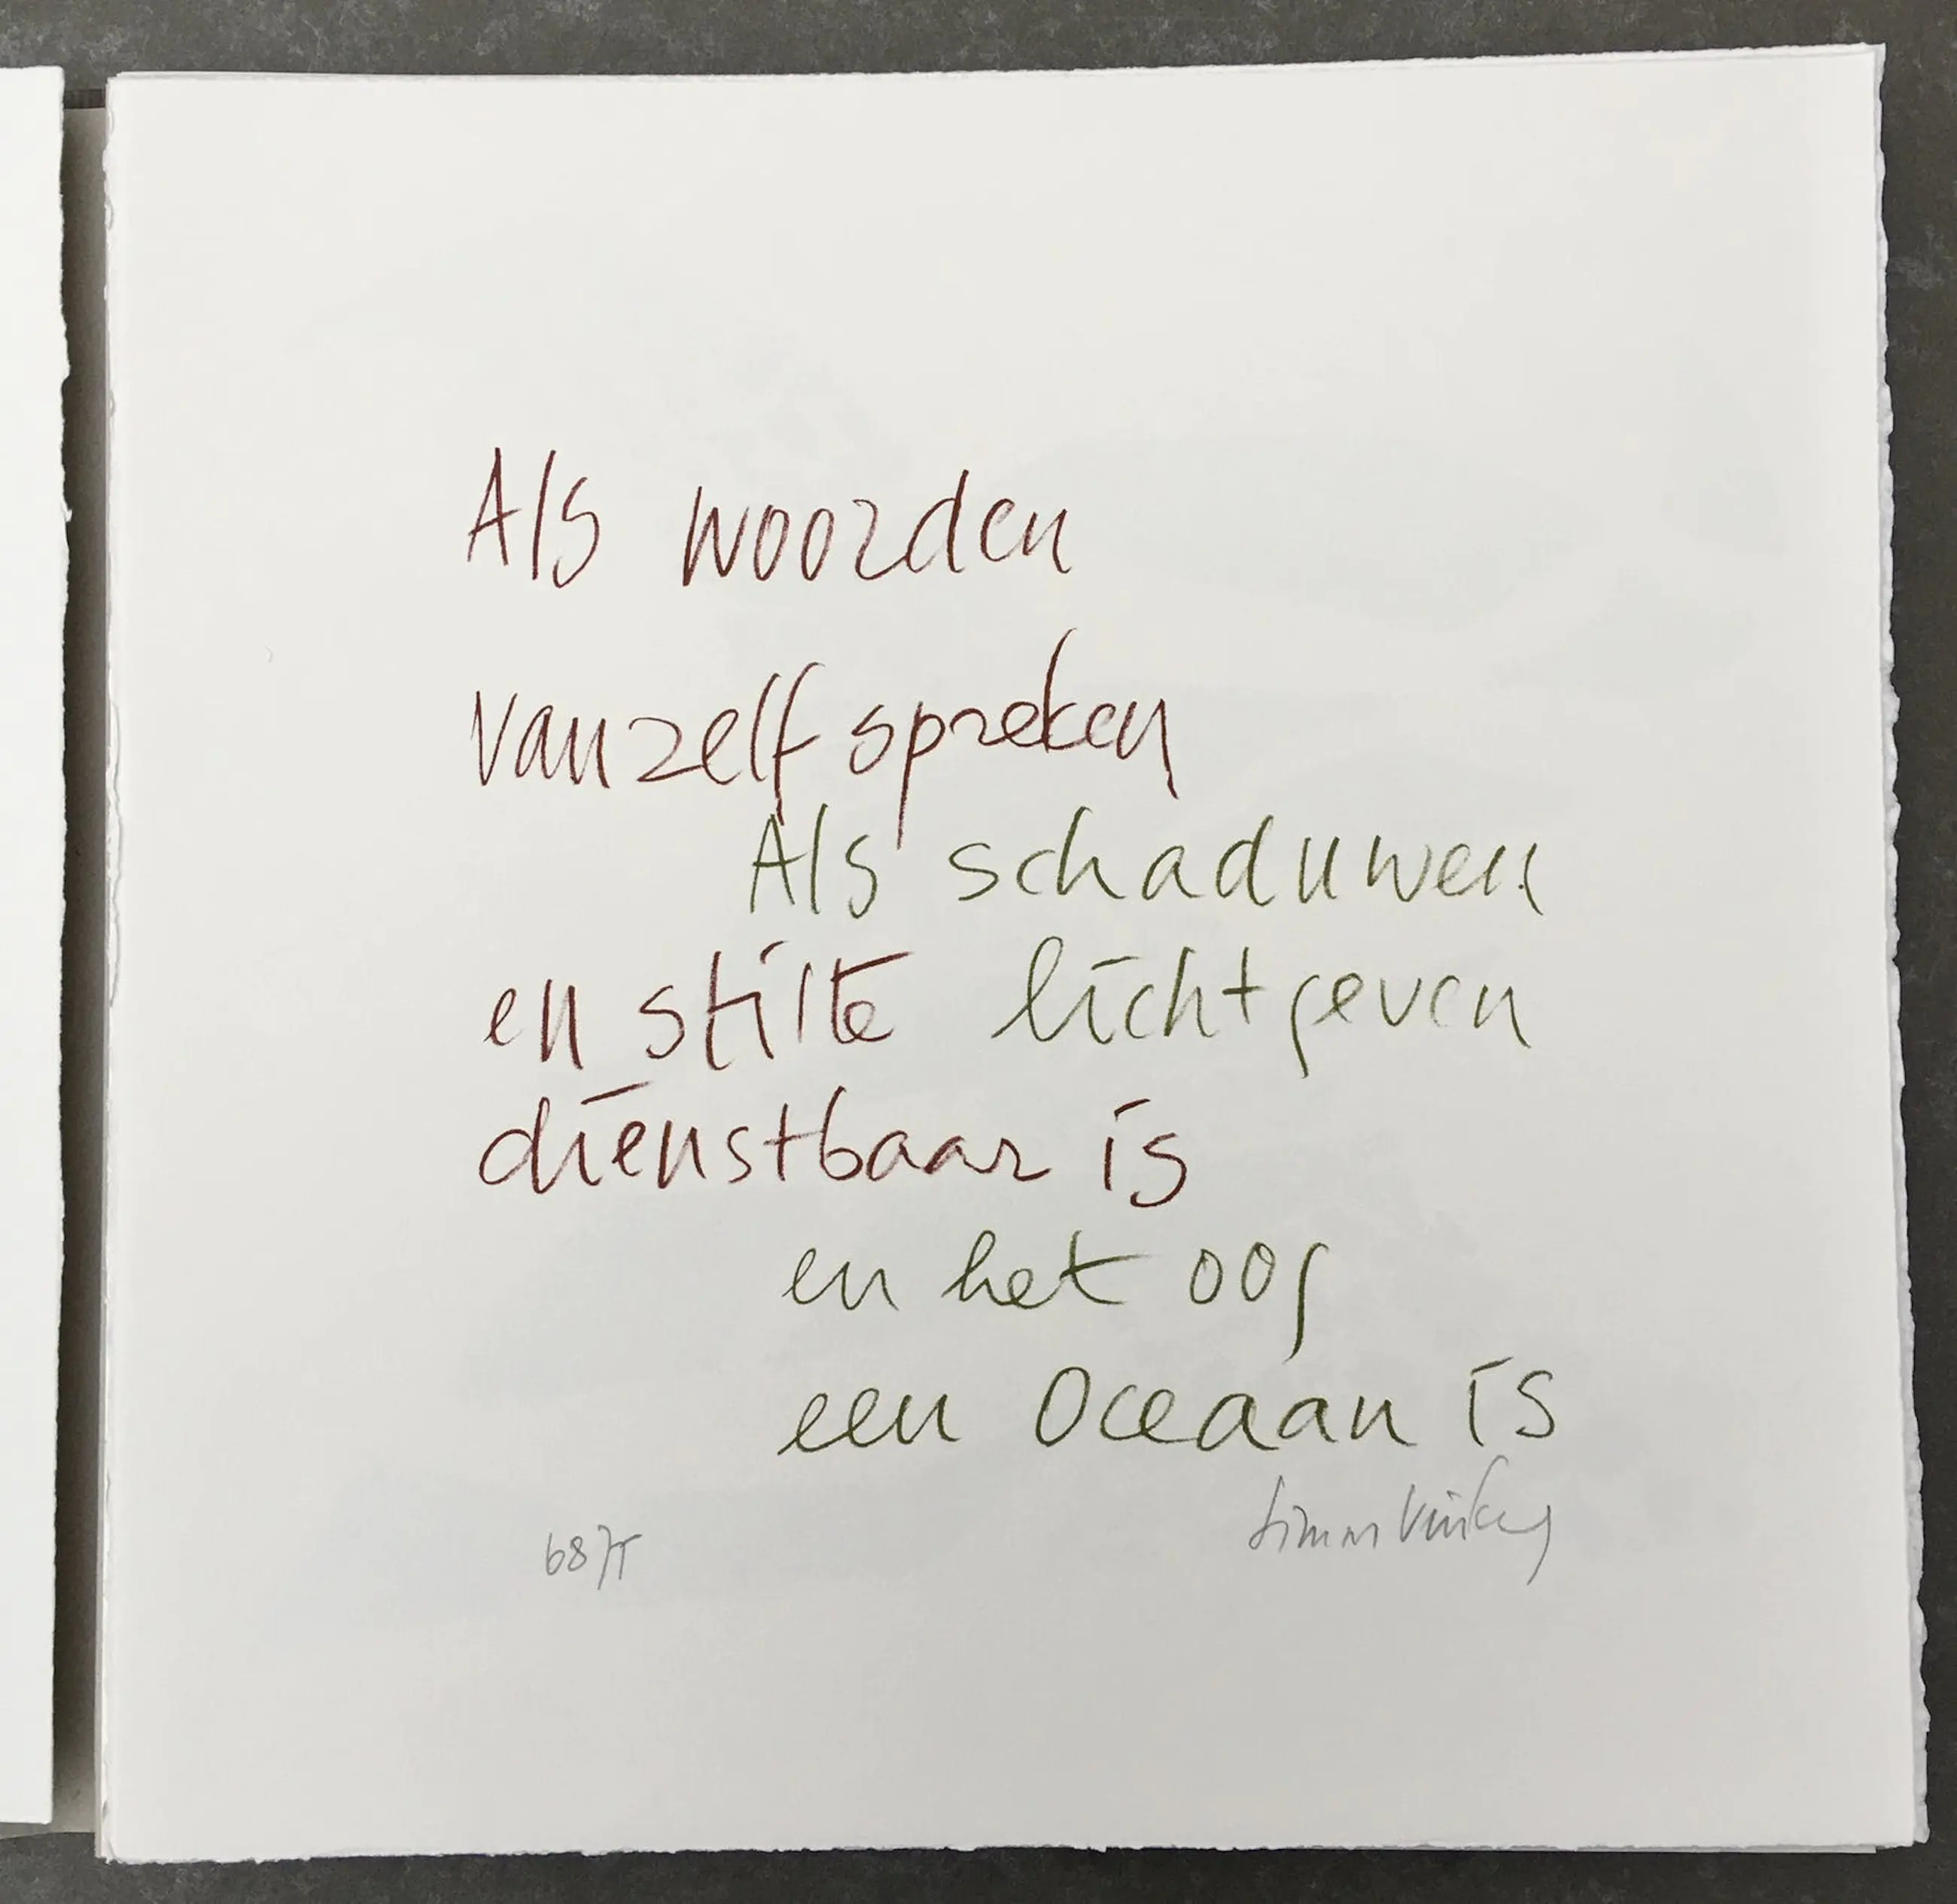 Als woorden
vanzelfspreken
Als schaduwen
en stilte lichtgeven
dienstbaar is
en het oog
een oceaan is
Simon Vinkenoog